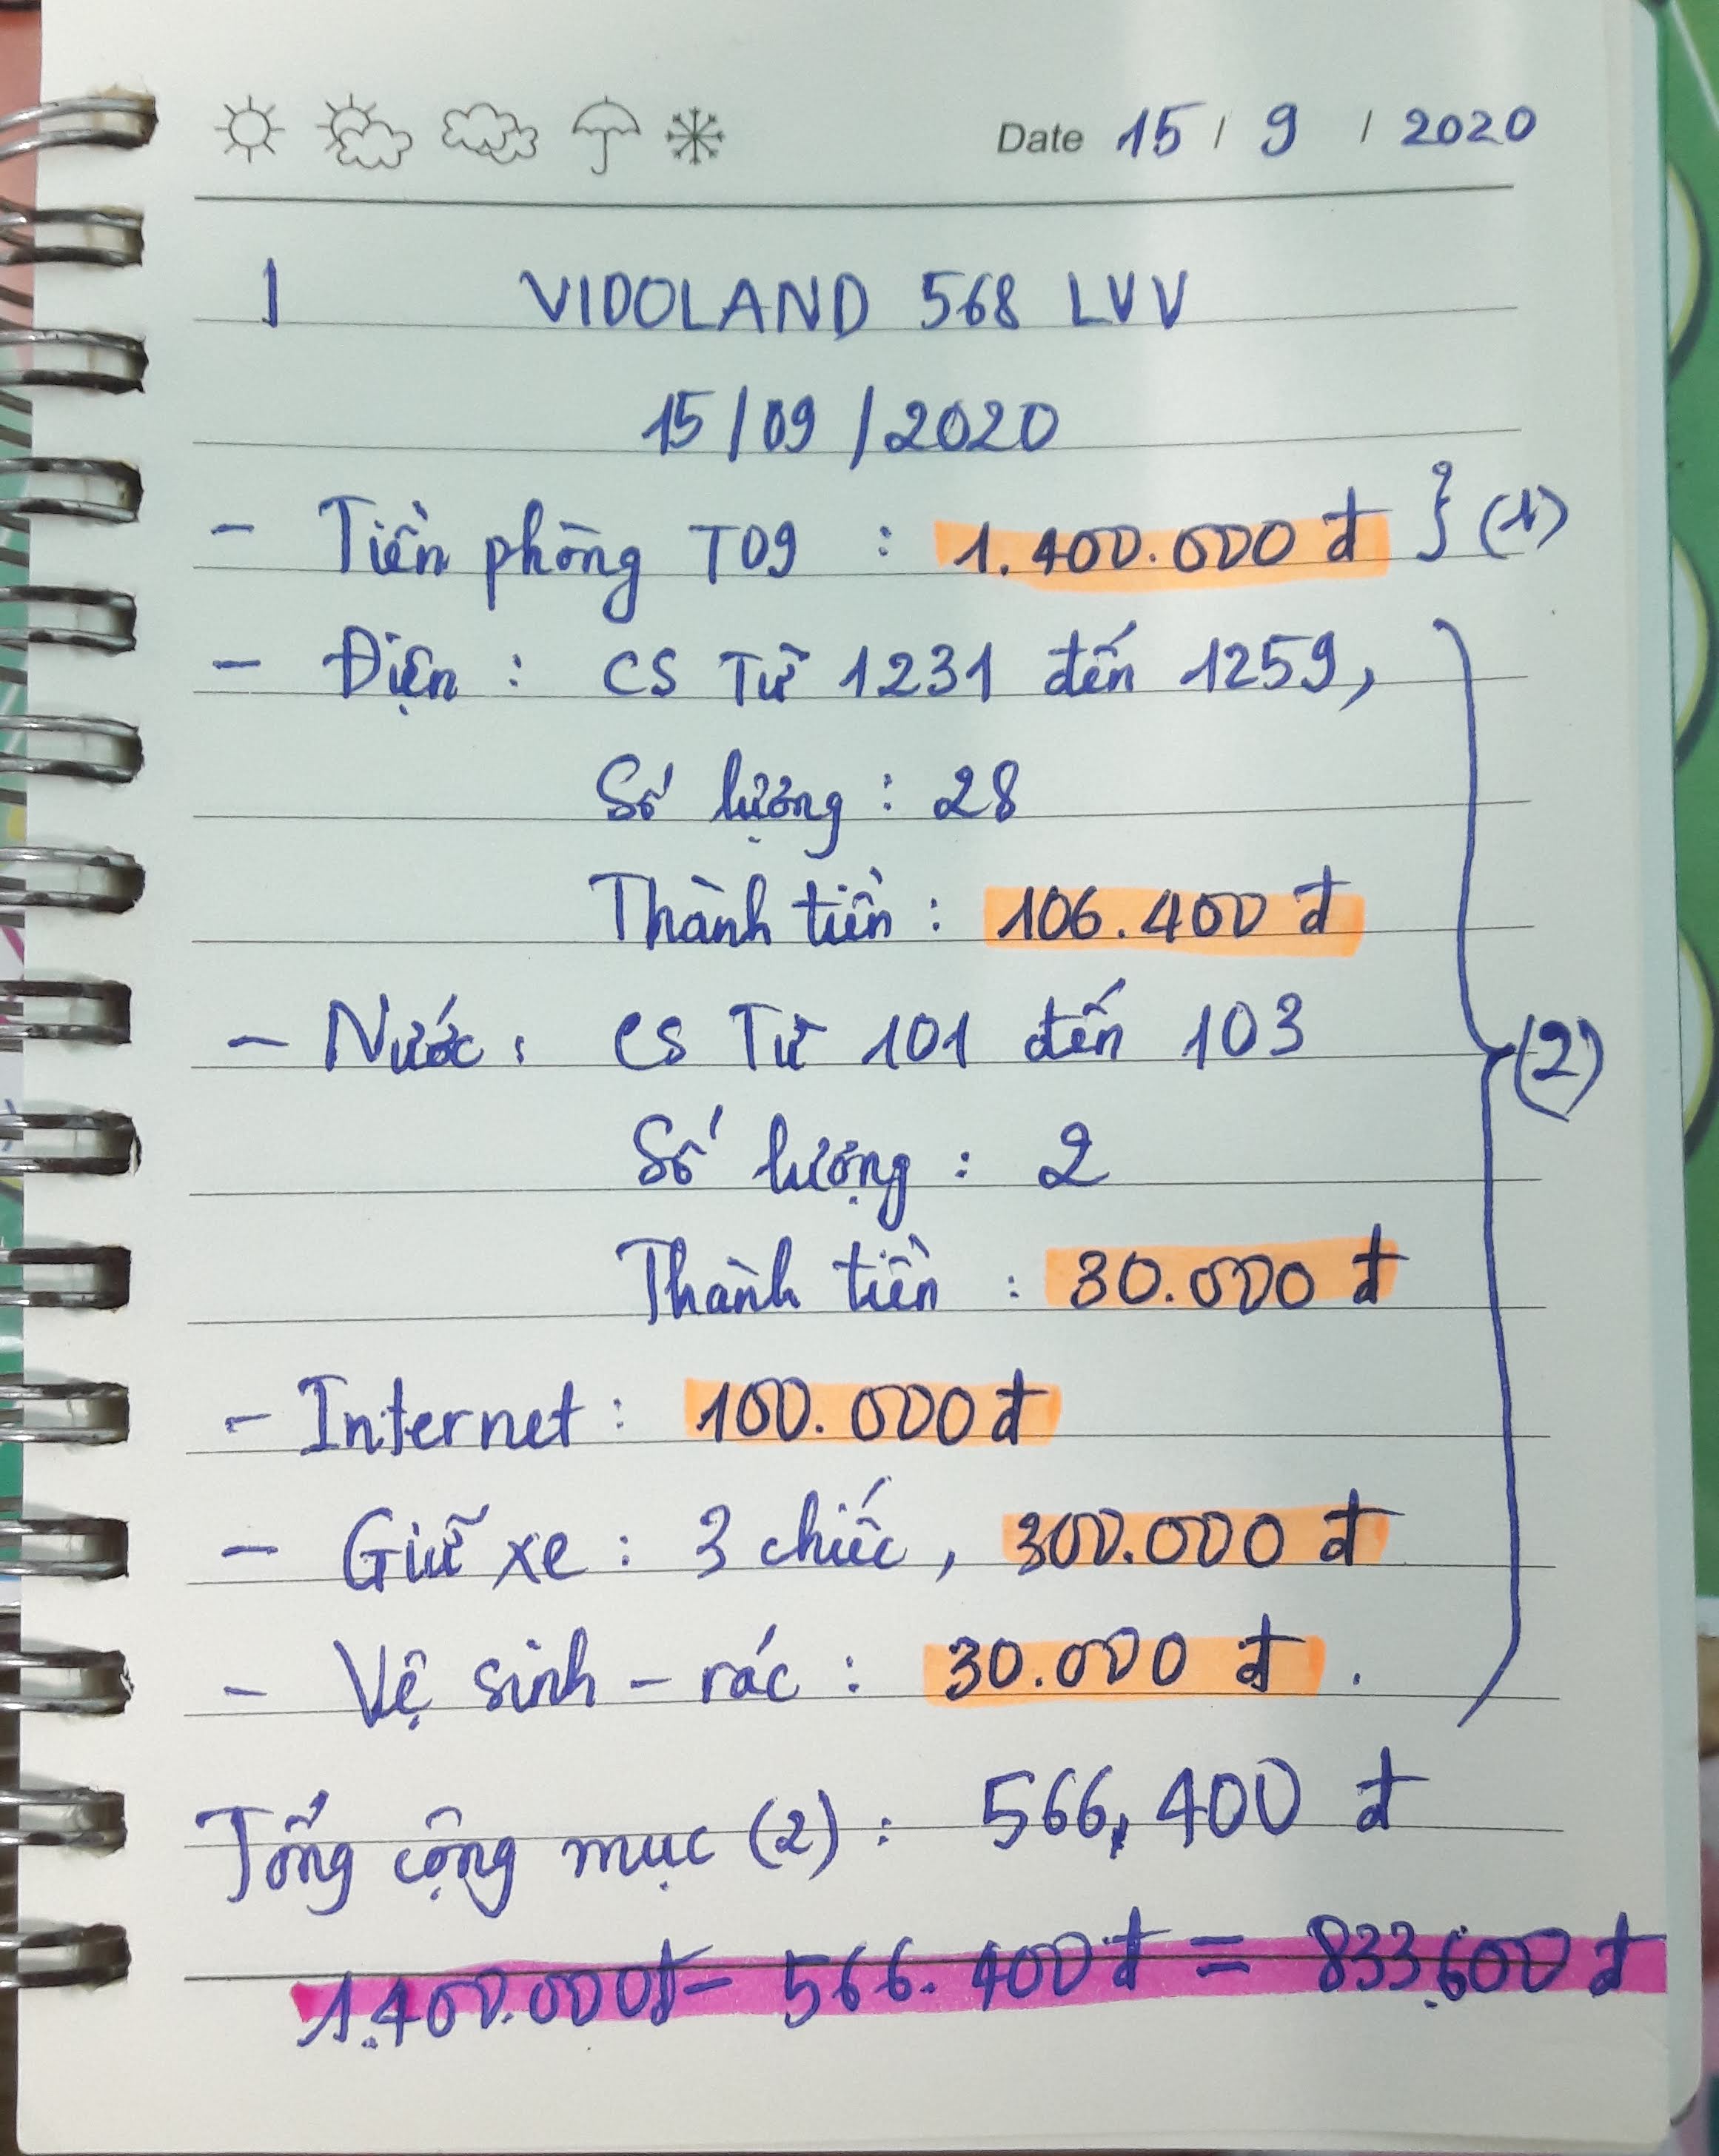 Date 15 / 9 / 2020
1 VIDOLAND 568 LVV
15/09/2020
- Tiền phòng T09 : 1.400.000 đ } (1)
- Điện : CS Từ 1231 đến 1259,
Số lượng : 28
Thành tiền : 106.400 đ
- Nước : CS Từ 101 đến 103
(2)
Số lượng : 2
Thành tiền : 30.000 đ
- Internet : 100.000 đ
- Giữ xe : 3 chiếc, 300.000 đ
- Vệ sinh - rác : 30.000 đ .
Tổng cộng mục (2) : 566,400 đ
1.400.000đ - 566.400 đ = 833.600 đ